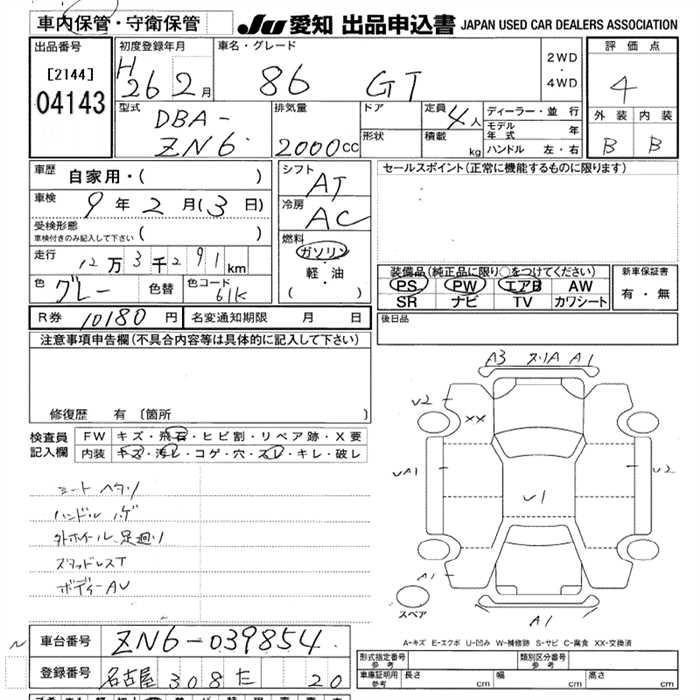 車内保管・守衛保管
JU 愛知 出品申込書 JAPAN USED CAR DEALERS ASSOCIATION
出品番号
[2144]
04143
初度登録年月
H26 2月
車名・グレード
86 GT
2WD
4WD
評価点
4
外装 内装
B B
型式
DBA-
ZN6
排気量
2000cc
ドア
形状
定員
4人
積載
kg
ディーラー・並行
モデル年式 年
ハンドル 左・右
車歴
自家用・( )
車検
9年2月(3日)
受検形態
車検付きのみ記入して下さい ( )
走行
12万3千291km
色
グレー
色替
色コード
61K
シフト
AT
冷房
AC
燃料
ガソリン
軽・油
( )
セールスポイント(正常に機能するものに限ります)
装備品(純正品に限り○をつけてください)
PS PW エアB AW
SR ナビ TV カワシート
新車保証書
有・無
R券 10180円
名変通知期限 月 日
後日品
注意事項申告欄(不具合内容等は具体的に記入して下さい)
修復歴 有 〔箇所 〕
検査員
記入欄
FW キズ・飛石・ヒビ割・リペア跡・X要
内装 キズ・汚レ・コゲ・穴・スレ・キレ・破レ
シートヘタリ
ハンドルハゲ
外ホイール、足廻り
スタッドレスT
ボディーAU
A3 ス・1A A1
U2
XX
UA1
U2
U1
A1
A1
スペア
A-キズ E-エクボ U-凹み W-補修跡 S-サビ C-腐食 XX-交換済
車台番号
ZN6-039854
登録番号
名古屋 308 た 20
形式指定番号
参考
類別区分番号
参考
車庫証明用
参考
長さ cm
幅 cm
高さ cm